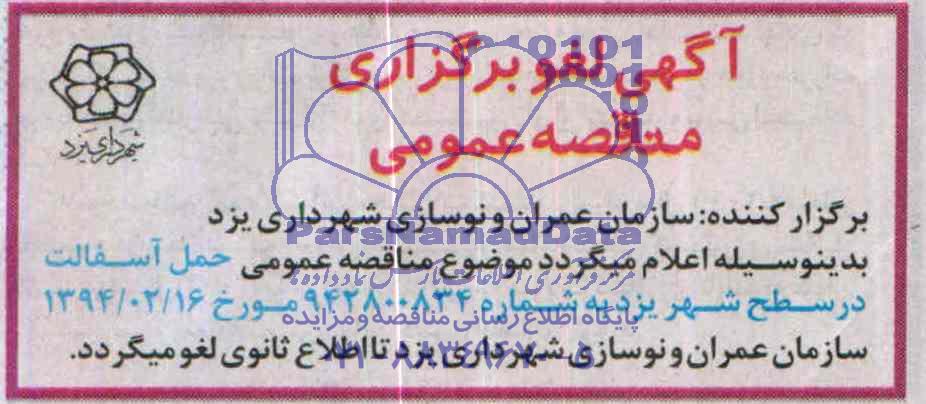 آگهی لغو برگزاری
مناقصه عمومی
شهرداری یزد
برگزار کننده: سازمان عمران و نوسازی شهرداری یزد
بدینوسیله اعلام میگردد موضوع مناقصه عمومی حمل آسفالت
در سطح شهر یزد به شماره ۹۴۲۸۰۰۸۳۴ مورخ ۱۳۹۴/۰۲/۱۶
سازمان عمران و نوسازی شهرداری یزد تا اطلاع ثانوی لغو میگردد.
ParsNamadData
پایگاه اطلاع رسانی مناقصه و مزایده